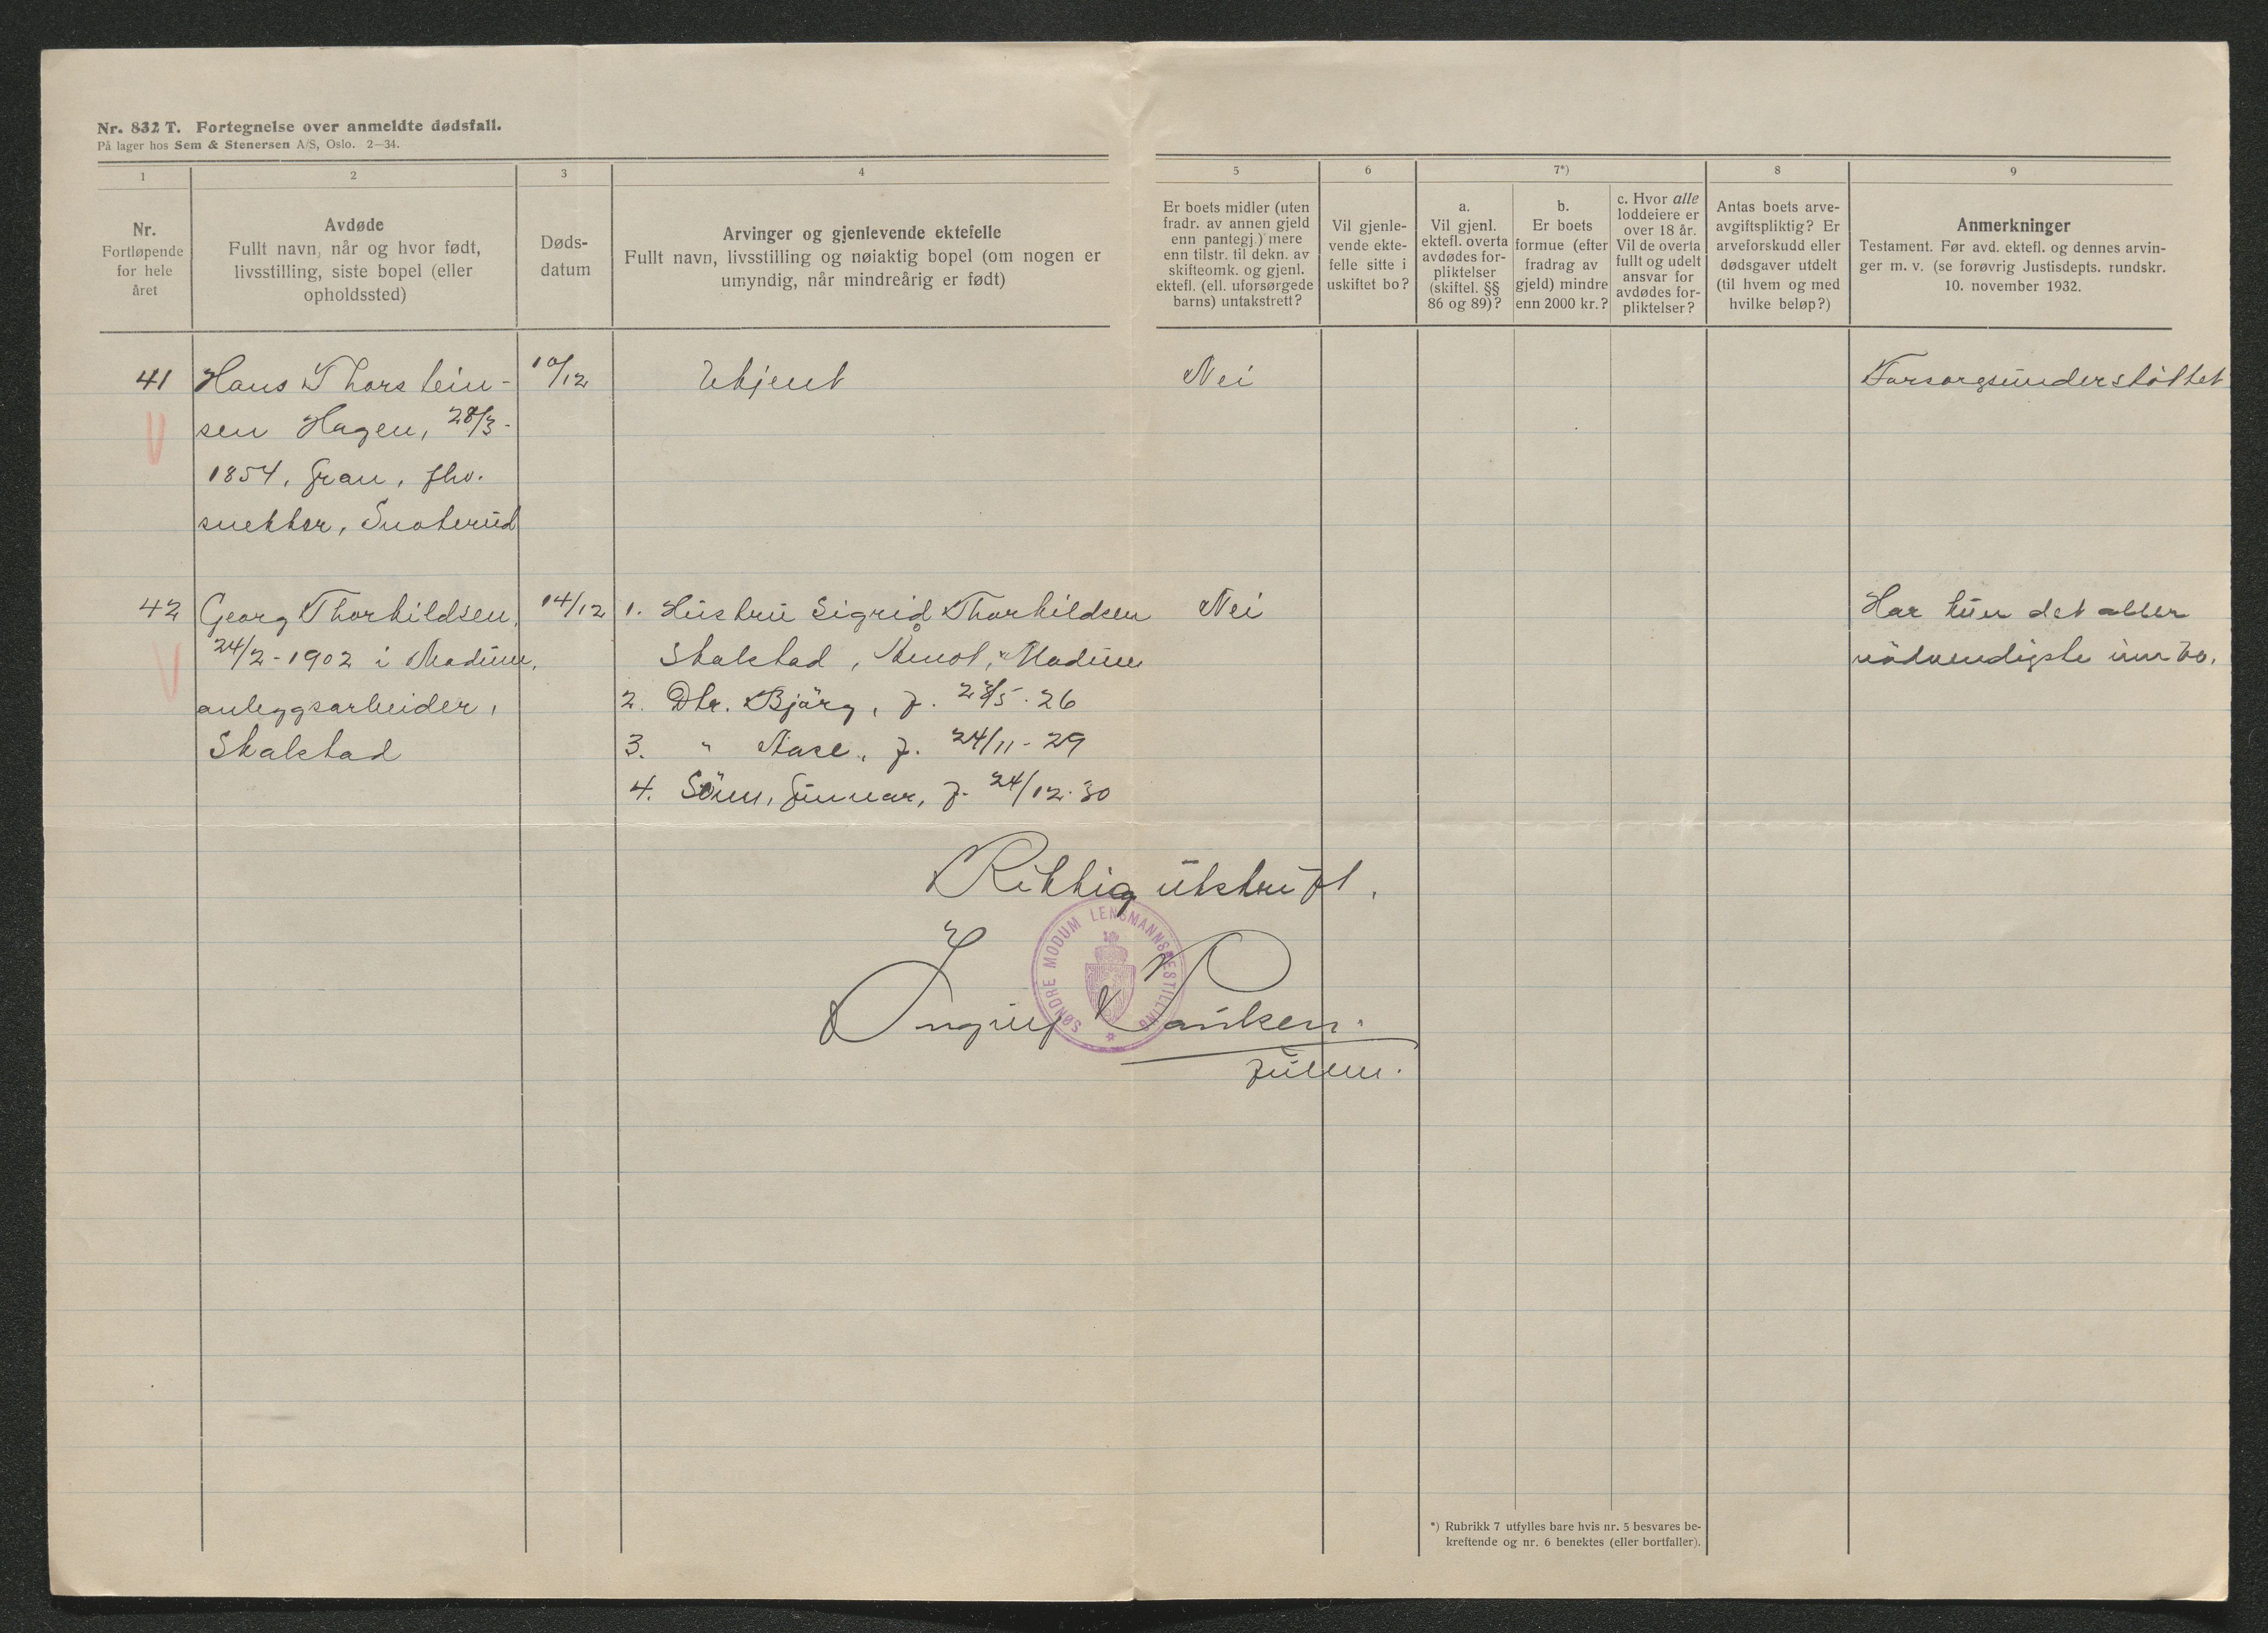 Nr. 832 T. Fortegnelse over anmeldte dødsfall.
På lager hos Sem & Stenersen A/S, Oslo. 2—34.
1
2
3
4
5
6
7*)
8
9
Nr.
Fortløpende
for hele
året
Avdøde
Fullt navn, når og hvor født,
livsstilling, siste bopel (eller
opholdssted)
Døds-
datum
Arvinger og gjenlevende ektefelle
Fullt navn, livsstilling og nøiaktig bopel (om nogen er
umyndig, når mindreårig er født)
Er boets midler (uten
fradr. av annen gjeld
enn pantegj.) mere
enn tilstr. til dekn. av
skifteomk. og gjenl.
ektefl. (ell. uforsørgede
barns) untakstrett?
Vil gjenle-
vende ekte-
felle sitte i
uskiftet bo?
a.
Vil gjenl.
ektefl. overta
avdødes for-
pliktelser
(skiftel. §§
86 og 89)?
b.
Er boets
formue (efter
fradrag av
gjeld) mindre
enn 2000 kr.?
c. Hvor alle
loddeiere er
over 18 år.
Vil de overta
fullt og udelt
ansvar for
avdødes for-
pliktelser?
Antas boets arve-
avgiftspliktig? Er
arveforskudd eller
dødsgaver utdelt
(til hvem og med
hvilke beløp?)
Anmerkninger
Testament. Før avd. ektefl. og dennes arvin-
ger m. v. (se forøvrig Justisdepts. rundskr.
10. november 1932.
41
Hans Thorstein-
sen Hagen, 28/3-
1854, Gran, fhv.
snekker, Snoterud
10/12
Ukjent
Nei
Forsorgsunderstöttet
42
Georg Thorkildsen,
24/2-1902 i Modum,
anleggsarbeider,
Skalstad
14/12
1. Hustru Sigrid Thorkildsen
Skalstad, Åmot, Modum
2. Dtr. Björg, f. 28/5-26
3. " Aase, f. 24/11-29
4. Sönn, Gunnar, f. 24/12-30
Nei
Har kun det aller
nödvendigste innbo.
Riktig utskrift.
SØNDRE MODUM LENSMANNSBESTILLING
Paulsen.
fullm.
*) Rubrikk 7 utfylles bare hvis nr. 5 besvares be-
kreftende og nr. 6 benektes (eller bortfaller).